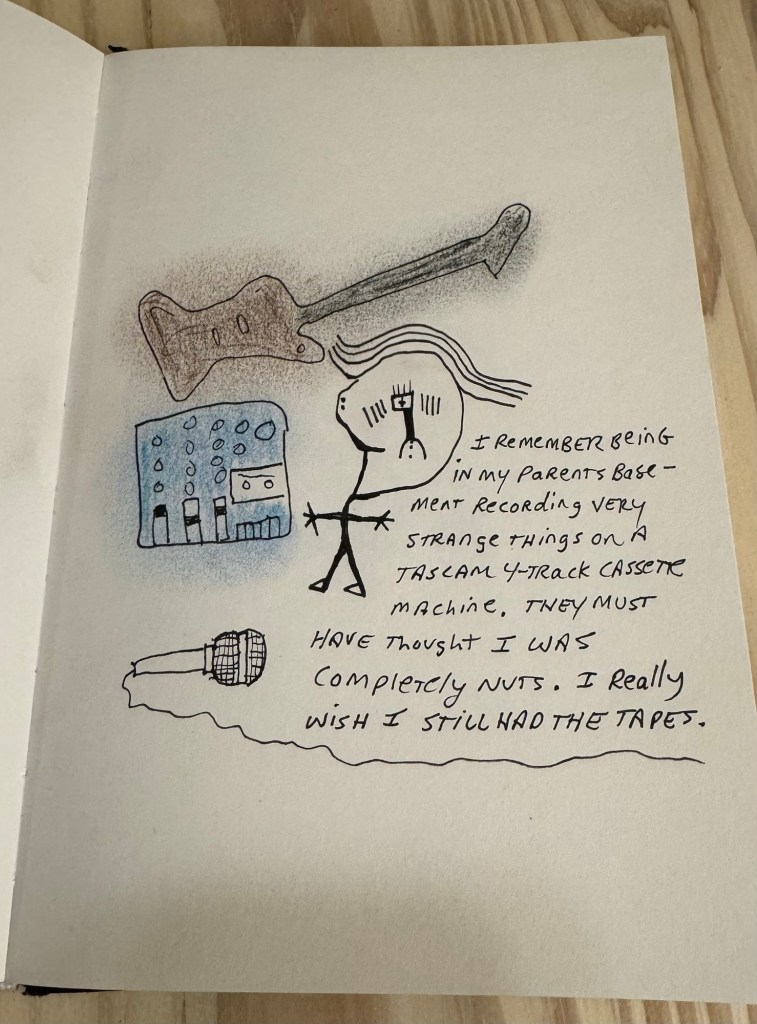 I REMEMBER BEING
IN MY PARENTS BASE-
MENT RECORDING VERY
STRANGE THINGS ON A
TASCAM 4-TRACK CASSETTE
MACHINE. THEY MUST
HAVE THOUGHT I WAS
COMPLETELY NUTS. I REALLY
WISH I STILL HAD THE TAPES.